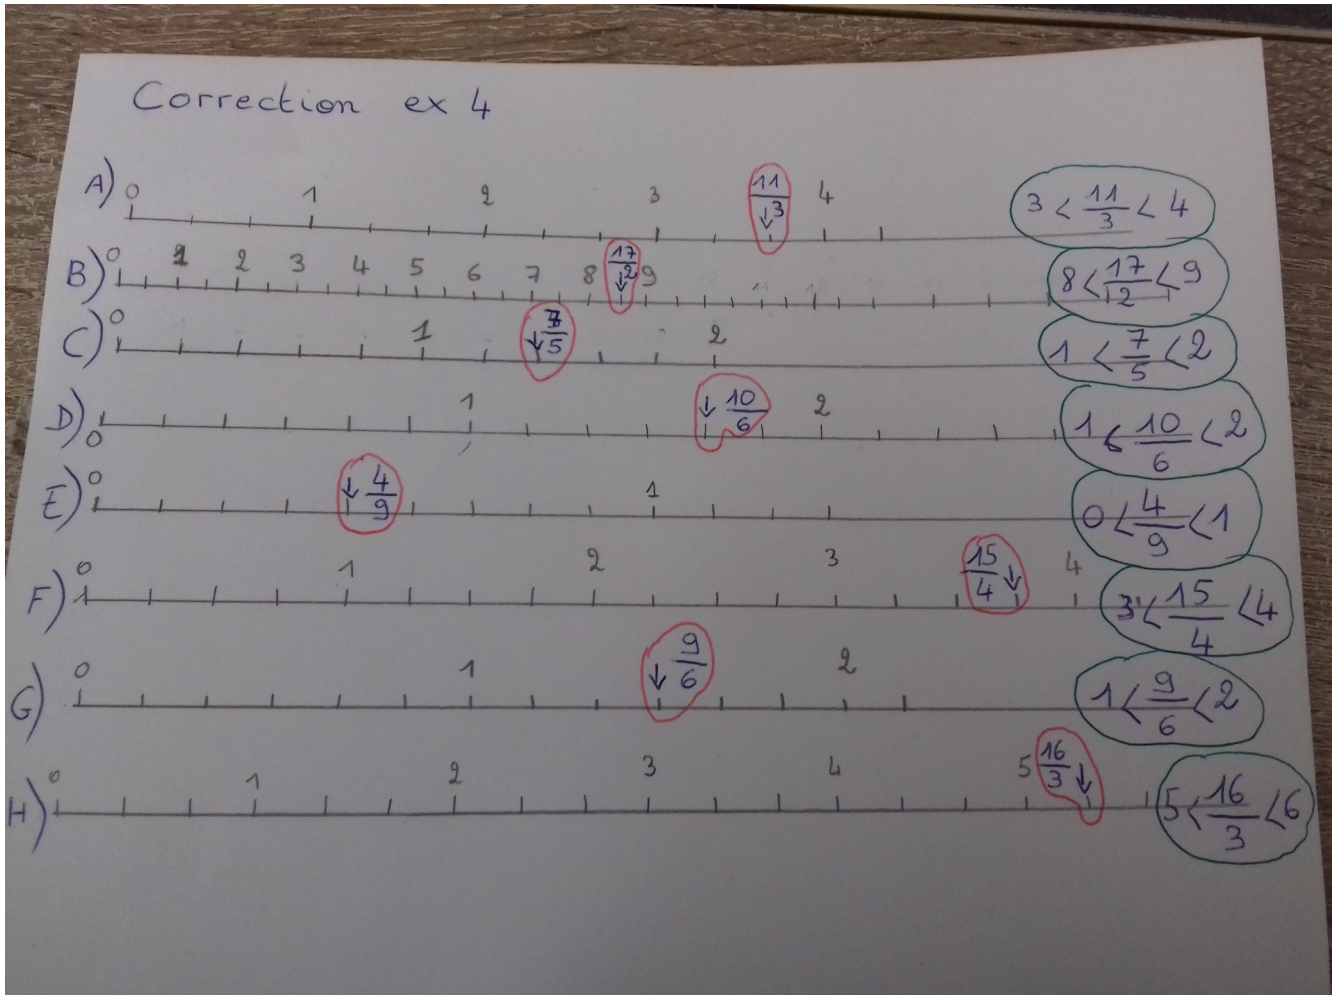 Correction ex 4
A) 0 1 2 3 11/3 ↓ 4 3 < 11/3 < 4
B) 0 1 2 3 4 5 6 7 8 17/2 ↓ 9 8 < 17/2 < 9
C) 0 1 ↓ 7/5 2 1 < 7/5 < 2
D) 0 1 ↓ 10/6 2 1 < 10/6 < 2
E) 0 ↓ 4/9 1 0 < 4/9 < 1
F) 0 1 2 3 15/4 ↓ 4 3 < 15/4 < 4
G) 0 1 ↓ 9/6 2 1 < 9/6 < 2
H) 0 1 2 3 4 5 16/3 ↓ 5 < 16/3 < 6